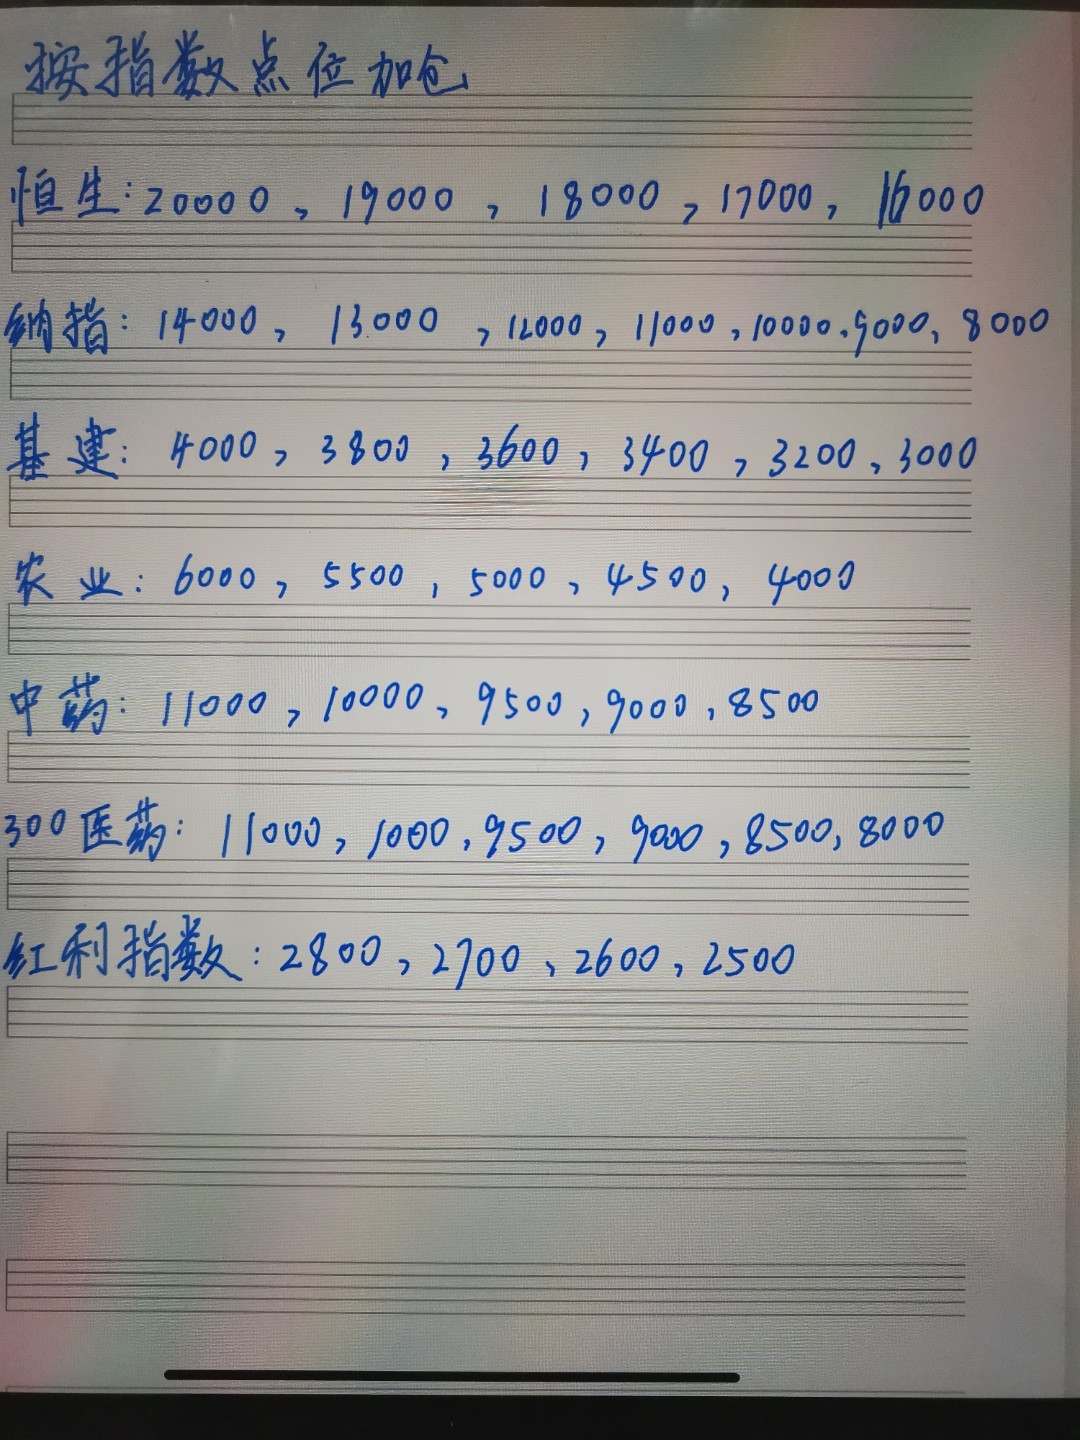 按指数点位加仓
恒生:20000、19000,18000,17000,16000
纳指:14000,13000,12000,11000,10000.9000,8000
基建:4000,3800,3600,3400,3200,3000
农业:6000,5500,5000,4500,4000
中药:11000,10000、9500,9000,8500
300医药:11000,1000,9500,9000,8500,8000
红利指数:2800,2700、2600,2500